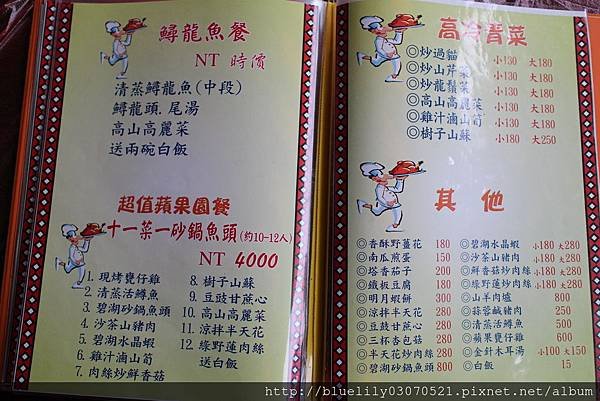 鱘龍魚餐
NT 時價
清蒸鱘龍魚(中段)
鱘龍頭.尾湯
高山高麗菜
送兩碗白飯
超值蘋果園餐
十一菜一砂鍋魚頭(約10-12人)
NT 4000
1. 現烤甕仔雞
2. 清蒸活鱒魚
3. 碧湖砂鍋魚頭
4. 沙茶山豬肉
5. 碧湖水晶蝦
6. 雞汁山筍
7. 肉絲炒鮮香菇
8. 樹子山蘇
9. 豆豉甘蔗心
10. 高山高麗菜
11. 涼拌半天花
12. 綠野蓮肉絲
送白飯
高冷青菜
◎炒過貓 小130 大180
◎炒山芹菜 小130 大180
◎炒龍鬚菜 小130 大180
◎高山高麗菜 小130 大180
◎雞汁滷山筍 小130 大180
◎樹子山蘇 小180 大250
其他
◎香酥野薑花 180
◎南瓜煎蛋 150
◎塔香茄子 200
◎鐵板豆腐 180
◎明月蝦餅 300
◎涼拌半天花 180
◎豆豉甘蔗心 180
◎三杯杏苞菇 180
◎半天花炒肉絲 280
◎碧湖砂鍋魚頭 800
◎碧湖水晶蝦 小180 大280
◎沙茶山豬肉 小180 大280
◎鮮香菇炒肉絲 小180 大280
◎綠野蓮炒肉絲 小180 大280
◎山羊肉爐 800
◎蒜蓉鹹豬肉 250
◎清蒸活鱒魚 500
◎蘋果甕仔雞 600
◎金針木耳湯 小100 大150
◎白飯 15
http://bluelily03070521.pixnet.net/album